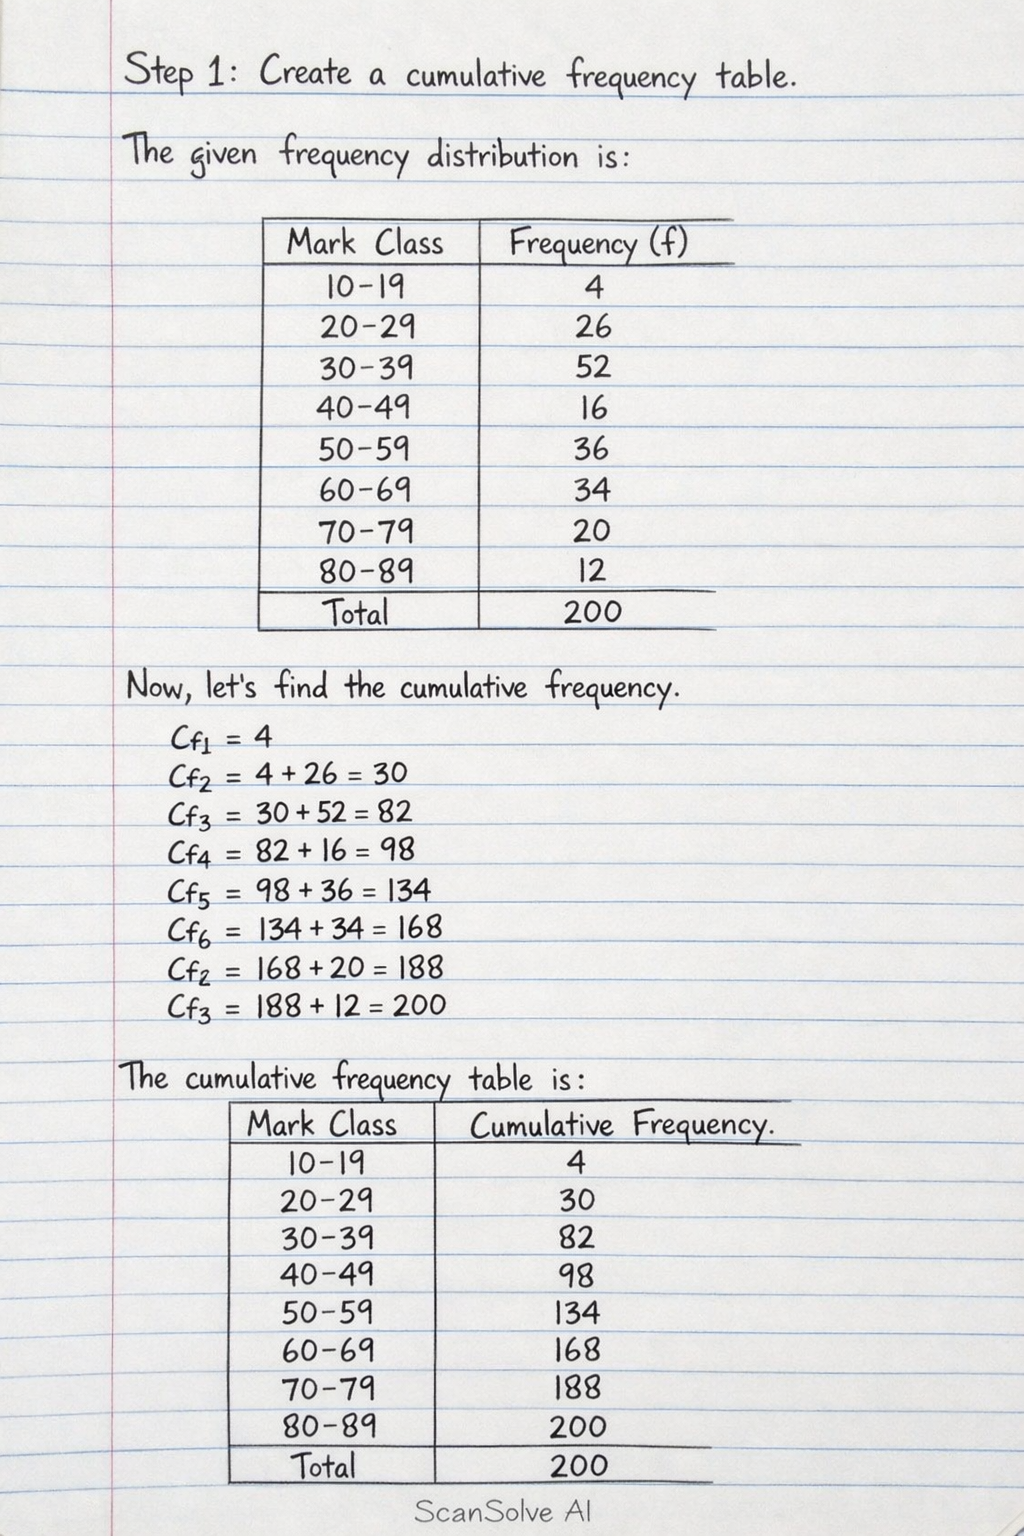 Step 1: Create a cumulative frequency table.
The given frequency distribution is:
Mark Class Frequency (f)
10-19 4
20-29 26
30-39 52
40-49 16
50-59 36
60-69 34
70-79 20
80-89 12
Total 200
Now, let's find the cumulative frequency.
Cf1 = 4
Cf2 = 4 + 26 = 30
Cf3 = 30 + 52 = 82
Cf4 = 82 + 16 = 98
Cf5 = 98 + 36 = 134
Cf6 = 134 + 34 = 168
Cf2 = 168 + 20 = 188
Cf3 = 188 + 12 = 200
The cumulative frequency table is:
Mark Class Cumulative Frequency.
10-19 4
20-29 30
30-39 82
40-49 98
50-59 134
60-69 168
70-79 188
80-89 200
Total 200
ScanSolve AI